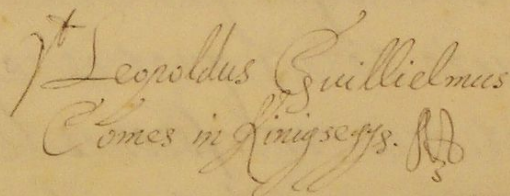 Leopoldus Guillielmus
Comes in Kinigsegg.